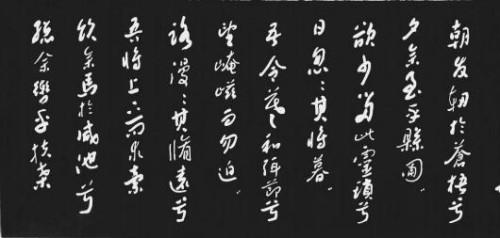 朝发軔於蒼梧兮
夕余至乎縣圃。
欲少留此靈瑣兮
日忽〻其將暮。
吾令羲和弭節兮
望崦嵫而勿迫。
路漫〻其脩遠兮
吾將上下而求索
飲余馬於咸池兮
總余轡乎扶桑